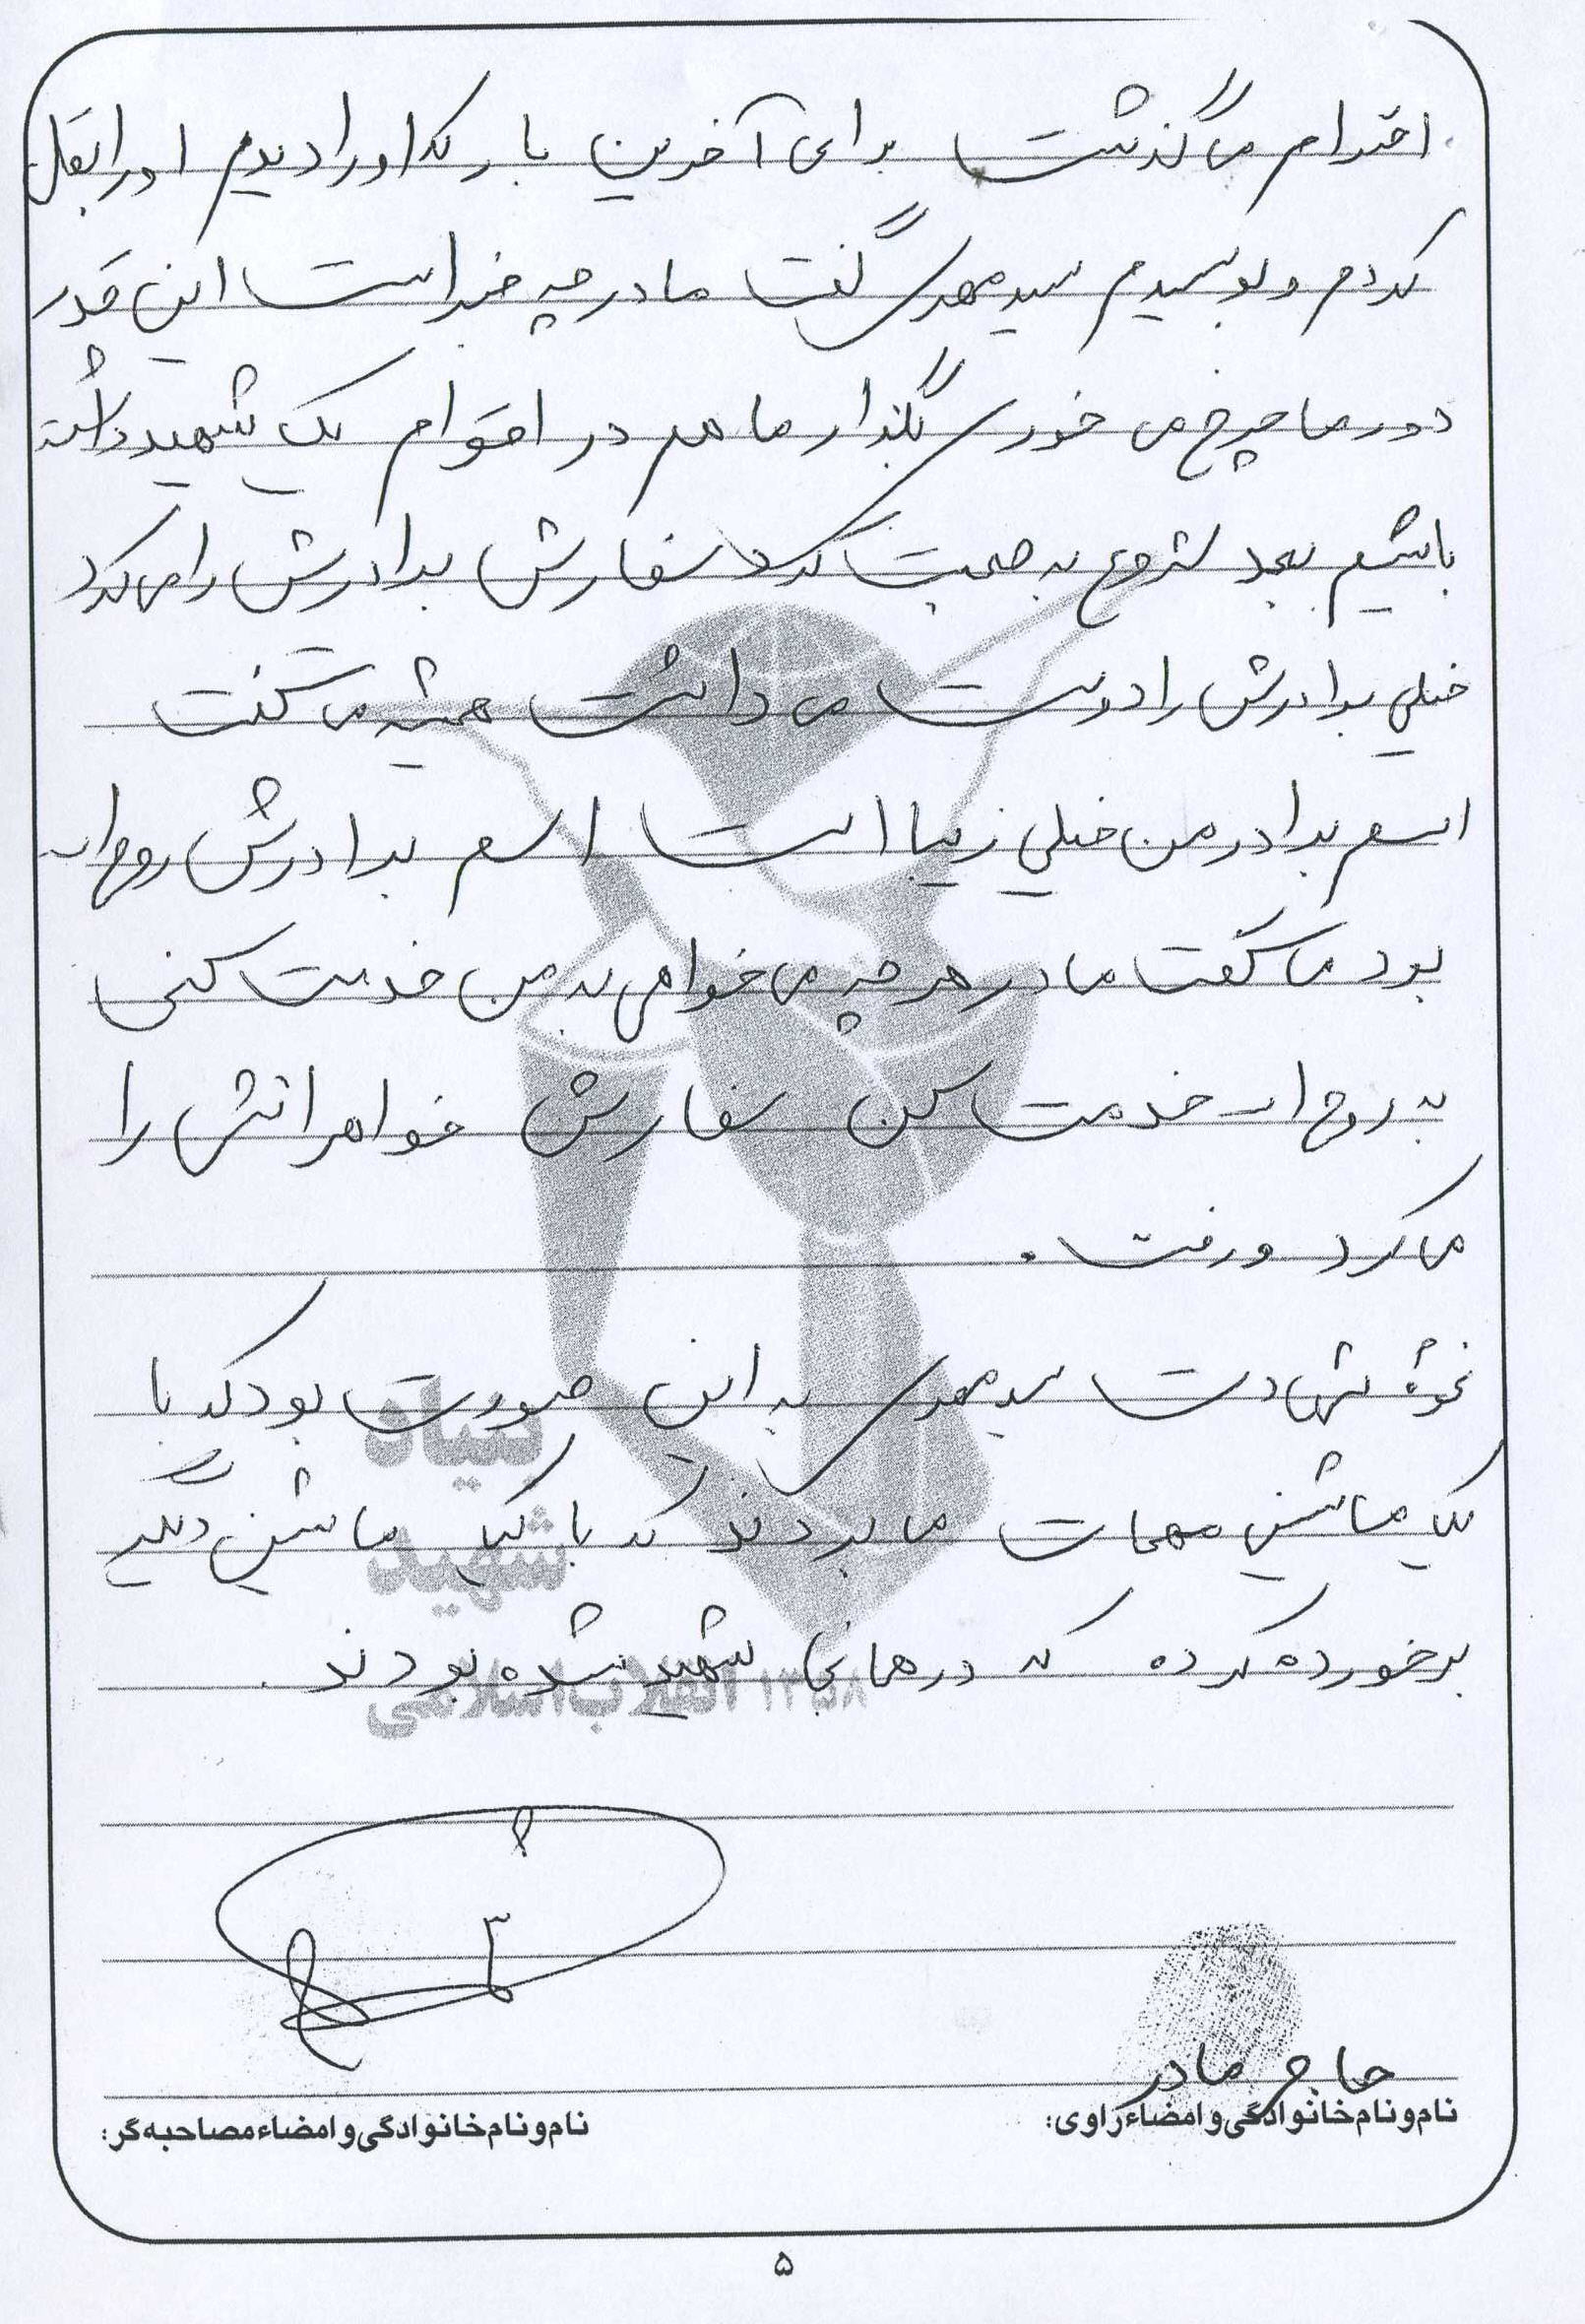 احترام می گذشت برای آخرین بار که او را دیدم او را بغل
کردم و بوسیدم سید مهدی گفت مادر چه خبر است این قدر
دور ما چرخ می خوری بگذار ما هم در اقوام یک شهید داشته
باشیم بعد شروع به صحبت کرد سفارش برادرش را می کرد
خیلی برادرش را دوست می داشت همیشه می گفت
اسم برادر من خیلی زیبا است اسم برادرش روح اله
بود می گفت مادر هر چه می خواهی به من خدمت کنی
به روح اله خدمت کن سفارش خواهرانش را
می کرد و رفت .
نحوهٔ شهادت سید مهدی به این صورت بود که با
یک ماشین مهمات می بردند که با یک ماشین دیگر
برخورده کرده که در همانجا شهید شده بودند .
بنیاد
شهید
انقلاب اسلامی ۱۳۵۸
حاج مادر
نام و نام خانوادگی و امضاء راوی:
نام و نام خانوادگی و امضاء مصاحبه گر:
۵